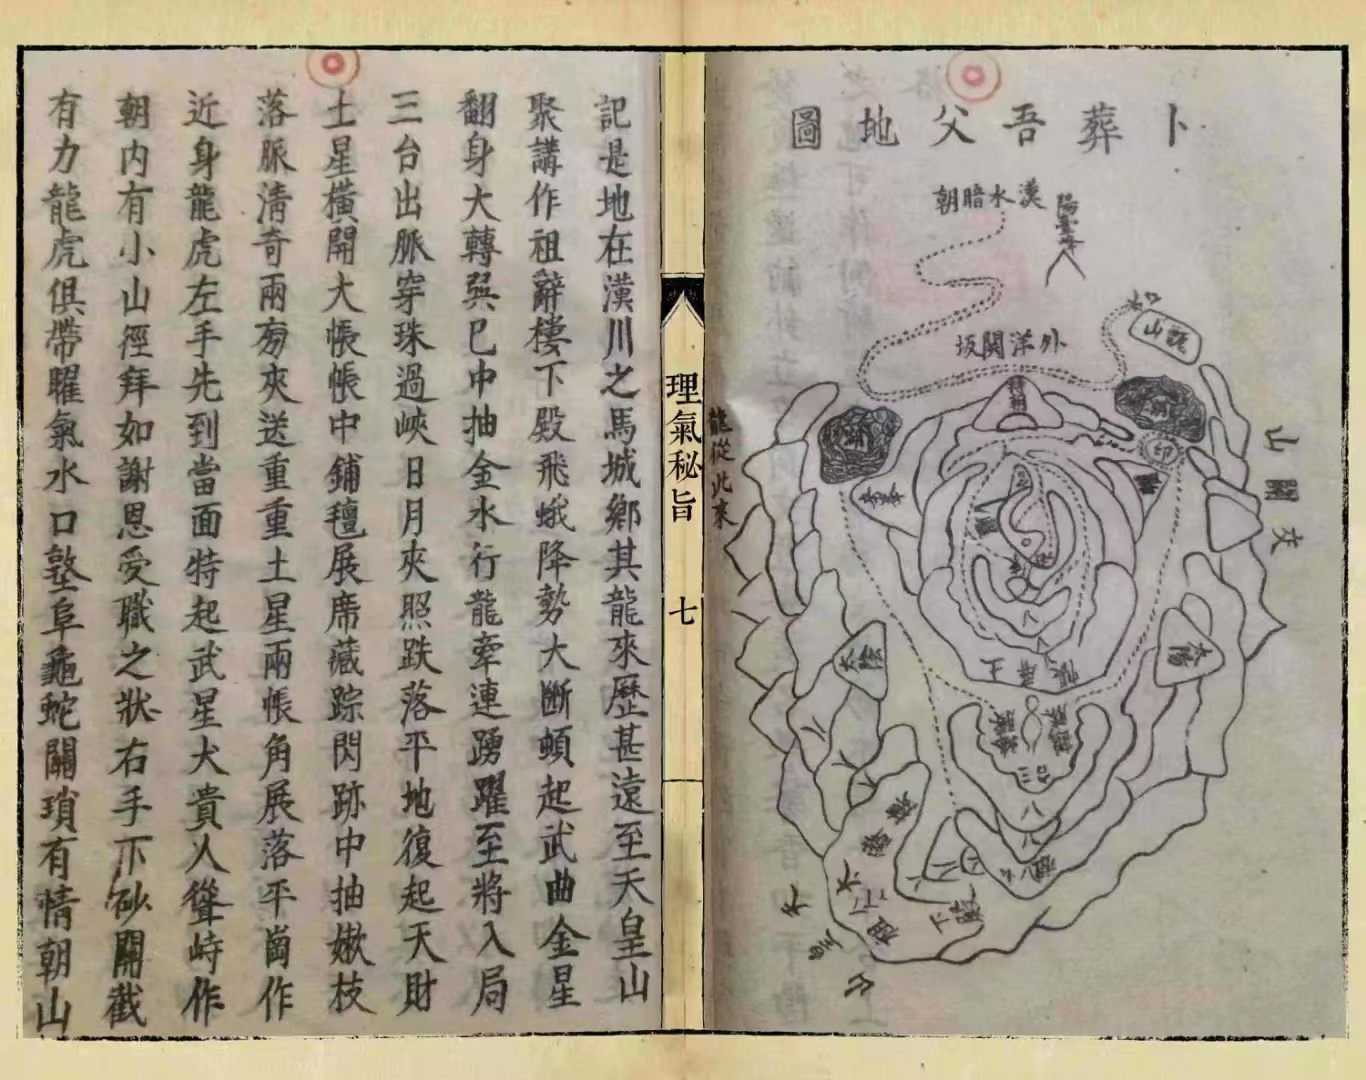 卜葬吾父地圖
漢水暗朝
陽臺峰
外洋関坂
龍從此來
山關交
特朝
印
太陰
太陽
帳
三台
下殿
天皇山
理氣秘旨
七
記是地在漢川之馬城鄉其龍來歷甚遠至天皇山
聚講作祖辭樓下殿飛蛾降勢大斷頓起武曲金星
翻身大轉巽巳中抽金水行龍牽連踴躍至將入局
三台出脈穿珠過峽日月夾照跌落平地復起天財
土星橫開大帳帳中鋪氊展席藏踪閃跡中抽嫩枝
落脈清奇兩旁夾送重重土星兩帳角展落平崗作
近身龍虎左手先到當面特起武星大貴人聳峙作
朝內有小山徑拜如謝恩受職之狀右手下砂關截
有力龍虎俱帶曜氣水口墪阜龜蛇關瑣有情朝山